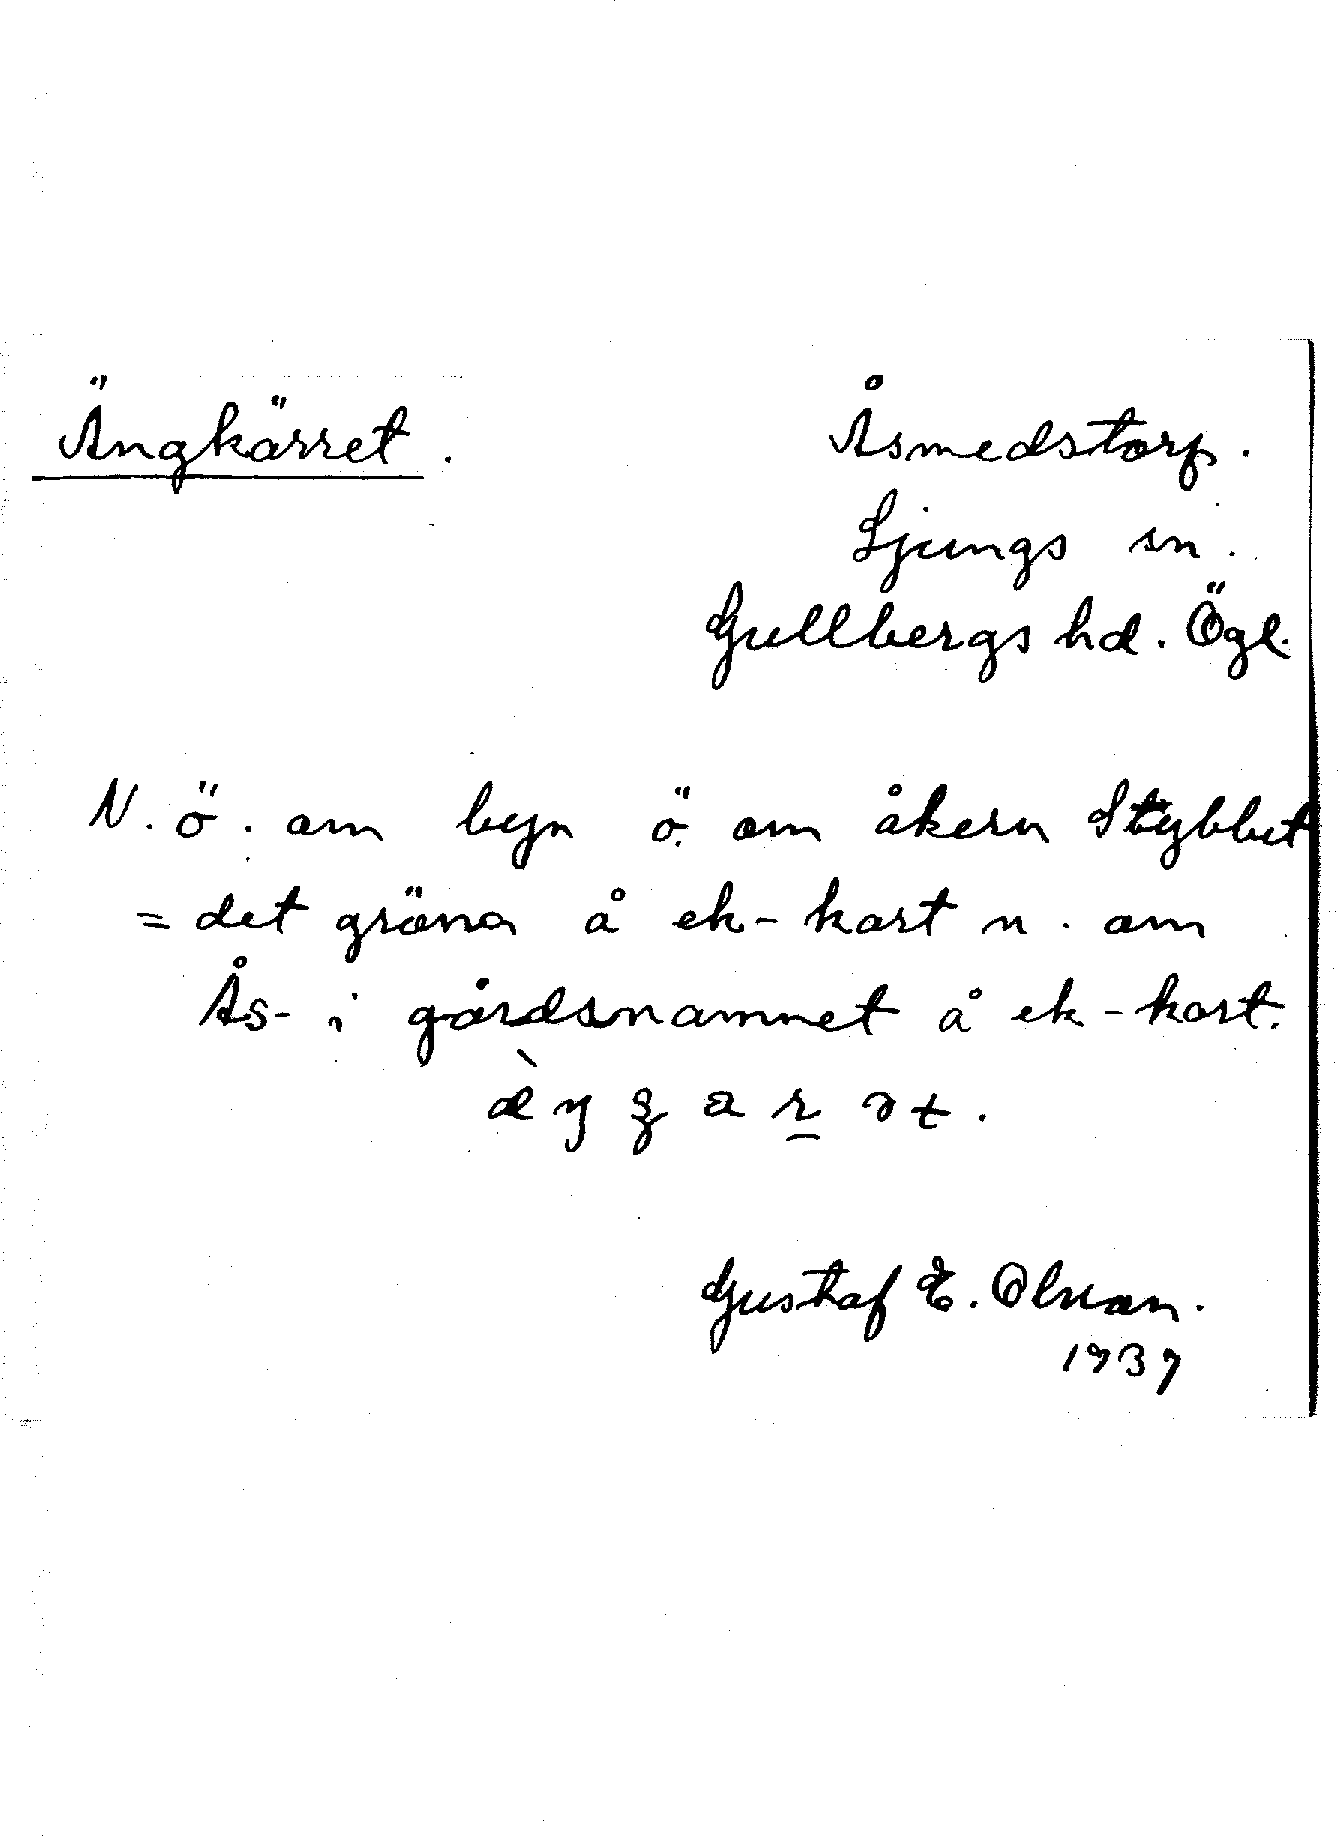 Ängkärret.
Åsmedstorp.
Ljungs sn.
Gullbergs hd. Ögl.
N. ö. om byn ö. om åkern Stybbet
= det gröna å ek-kart n. om
Ås- i gårdsnamnet å ek-kart.
Gustaf E. Olsson.
1937